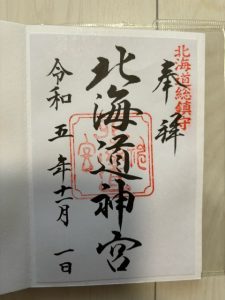 北海道総鎮守
奉拝
北海道神宮
令和五年十一月一日